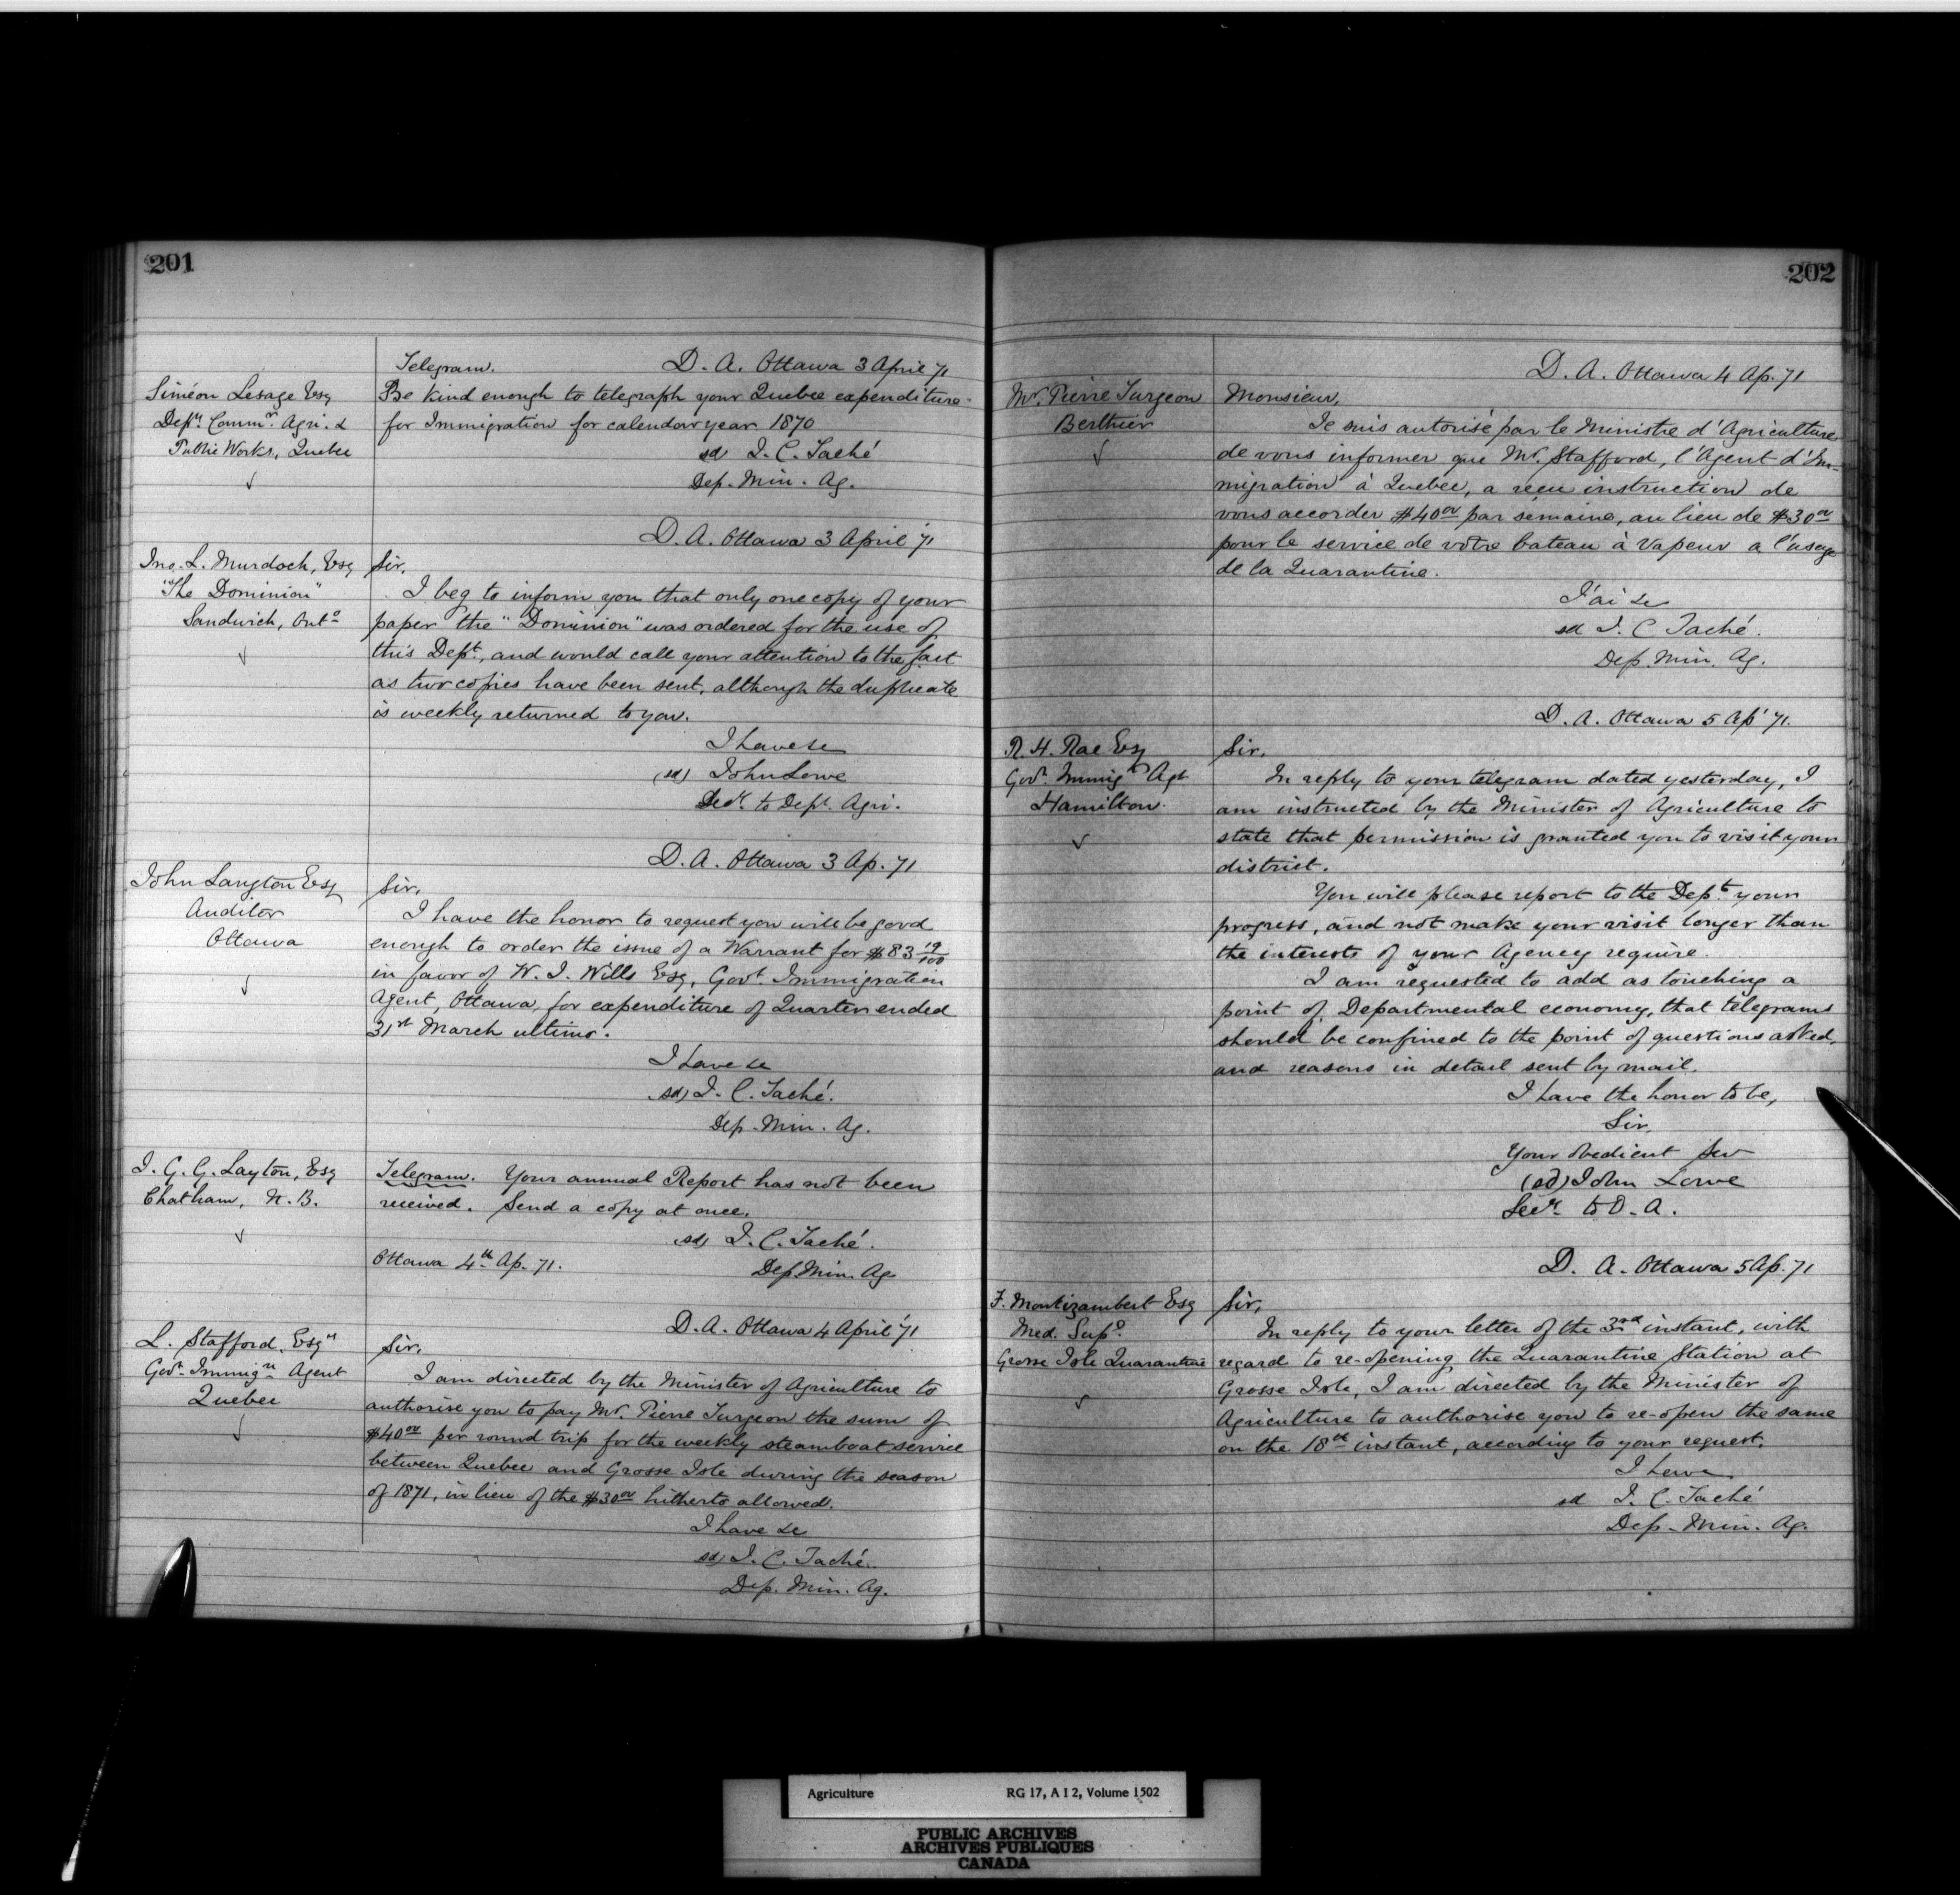 201
Telegram. D. A. Ottawa 3 April '71
Siméon Lesage Esq
Depy Commr. Agri. &
Public Works, Quebec
Be kind enough to telegraph your Quebec expenditure
for Immigration for calendar year 1870
sd J. C. Taché
Dep. Min. Ag.
D. A. Ottawa 3 April '71
Jno. L. Murdoch, Esq
"The Dominion"
Sandwich, Onto
Sir,
I beg to inform you that only one copy of your
paper the "Dominion" was ordered for the use of
this Dept., and would call your attention to the fact
as two copies have been sent, although the duplicate
is weekly returned to you.
I have &c
(sd) John Lowe
Secy. to Dept. Agri.
D. A. Ottawa 3 Ap. 71
John Langton Esq
Auditor
Ottawa
Sir,
I have the honor to request you will be good
enough to order the issue of a Warrant for $83 19/100
in favor of W. J. Wills Esq, Govt. Immigration
Agent, Ottawa, for expenditure of Quarter ended
31st March ultimo.
I have &c
(sd) J. C. Taché.
Dep. Min. Ag.
J. G. G. Layton, Esq
Chatham, N. B.
Telegram. Your annual Report has not been
received. Send a copy at once.
sd) J. C. Taché.
Ottawa 4th Ap. 71. Dep Min. Ag
D. A. Ottawa 4 April '71
L. Stafford, Esqr
Govt. Immign. Agent
Quebec
Sir,
I am directed by the Minister of Agriculture to
authorise you to pay Mr. Pierre Turgeon the sum of
$40oo per round trip for the weekly steamboat service
between Quebec and Grosse Isle during the season
of 1871, in lieu of the $30oo hitherto allowed.
I have &c
sd) J. C. Taché.
Dep. Min. Ag.
202
D. A. Ottawa 4 Ap. 71
Mr. Pierre Turgeon
Berthier
Monsieur,
Je suis autorisé par le Ministre d'Agriculture
de vous informer que Mr. Stafford, l'Agent d'Im-
migration à Quebec, a reçu instruction de
vous accorder $40oo par semaine, au lieu de $30oo
pour le service de votre bateau à vapeur a l'usage
de la Quarantine.
J'ai &c
sd J. C Taché.
Dep. Min. Ag.
D. A. Ottawa 5 Ap' 71.
R. H. Rae Esq
Govt. Immign Agt
Hamilton.
Sir,
In reply to your telegram dated yesterday, I
am instructed by the Minister of Agriculture to
state that permission is granted you to visit your
district.
You will please report to the Dept. your
progress, and not make your visit longer than
the interests of your Agency require.
I am requested to add as touching a
point of Departmental economy, that telegrams
should be confined to the point of questions asked,
and reasons in detail sent by mail.
I have the honor to be,
Sir,
Your obedient Serv
(sd) John Lowe
Secy. to D. A.
D. A. Ottawa 5 Ap. 71
F. Montizambert Esq
Med. Supt.
Grosse Isle Quarantine
Sir,
In reply to your letter of the 3rd instant, with
regard to re-opening the Quarantine Station at
Grosse Isle, I am directed by the Minister of
Agriculture to authorise you to re-open the same
on the 18th instant, according to your request.
I have
sd J. C. Taché
Dep. Min. Ag.
Agriculture RG 17, A I 2, Volume 1502
PUBLIC ARCHIVES
ARCHIVES PUBLIQUES
CANADA